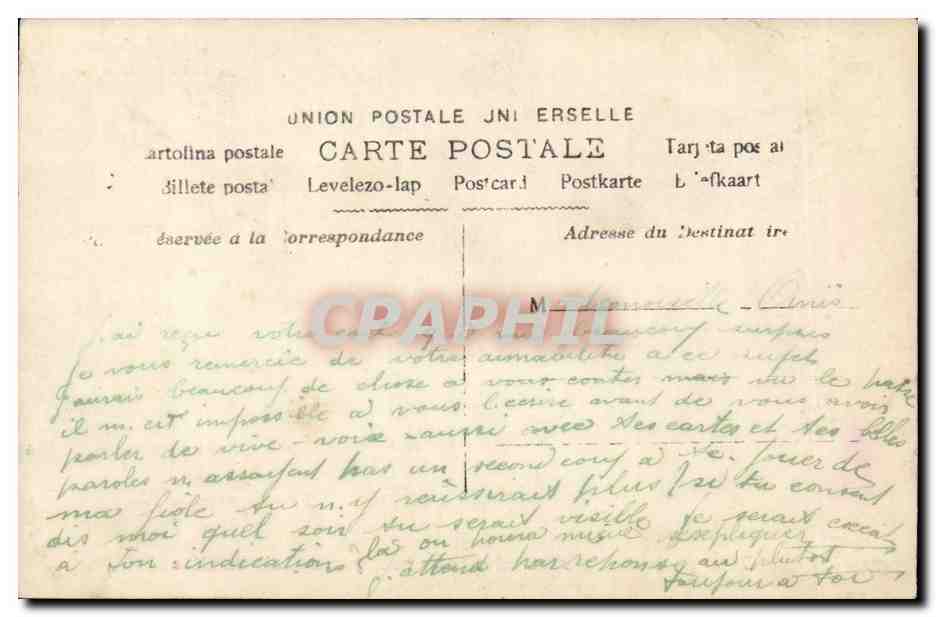 UNION POSTALE JNI ERSELLE
artolina postale CARTE POSTALE Tarj ta pos al
Billete posta Levelezo-lap Postcard Postkarte B efkaart
éservée à la Correspondance Adresse du Destinat ire
CPAPHIL
Mademoiselle
J'ai reçu votre beaucoup surpris
Je vous remercie de votre aimabilité a ce sujet
J'aurais beaucoup de chose a vous conter mais vu le
il m'est impossible a vous l'ecrire avant de vous avoir
parler de vive-voix aussi avec tes cartes et tes belles
paroles m pas un second coup a te
ma fiole tu n'y reussirait plus si tu consent
dis moi quel soir tu serait visible je serait exact
a ton indication là on pourra mieux expliquer
J'attend par reponse au plutot
toujour a toi